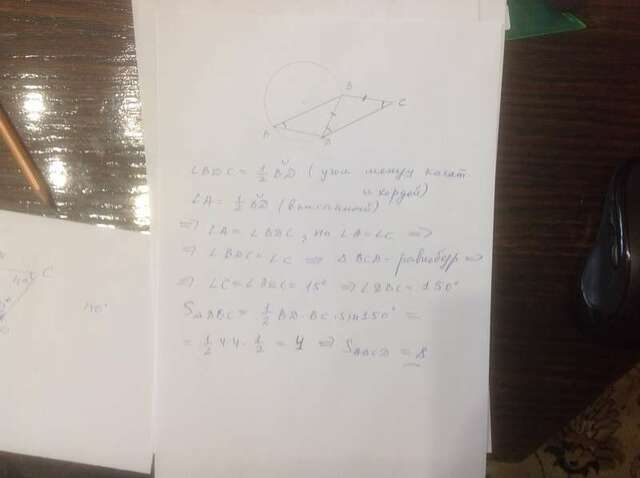 B
C
A
D
∠BDC = 1/2 ◡BD (угол между касат
и хордой)
∠A = 1/2 ◡BD (вписанный)
⇒ ∠A = ∠BDC, но ∠A = ∠C ⇒
⇒ ∠BDC = ∠C ⇒ △BCD - равнобедр ⇒
⇒ ∠C = ∠BDC = 15° ⇒ ∠DBC = 150°
S△DBC = 1/2 BD · BC · sin150° =
= 1/2 4·4 · 1/2 = 4 ⇒ SABCD = 8
C
40°
40°